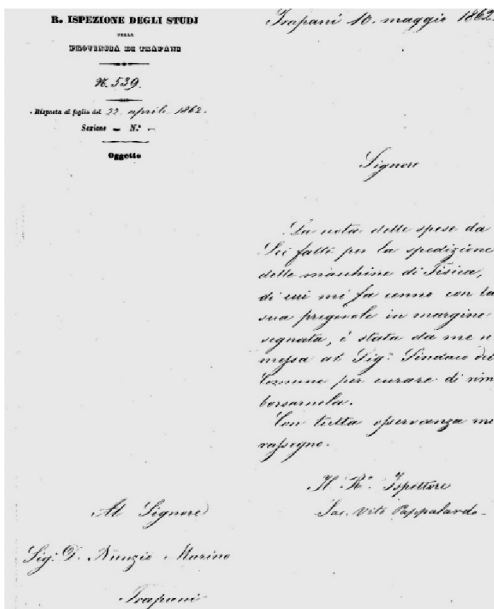 R. ISPEZIONE DEGLI STUDJ
DELLA
PROVINCIA DI TRAPANI
N. 539.
Risposta al foglio del 22 aprile 1862.
Sezione – N.° –
Oggetto
Trapani 10. maggio 1862.
Signore
La nota delle spese da
Lei fatti per la spedizione
delle macchine di Fisica,
di cui mi fa cenno con la
sua pregevole in margine
segnata, è stata da me ri
messa al Sig.r Sindaco del
Comune per curare di rim
borsarnela.
Con tutta osservanza mi
rassegno.
Il R.o Ispettore
Sac. Vito Pappalardo
Al Signore
Sig. D. Nunzio Marino
Trapani